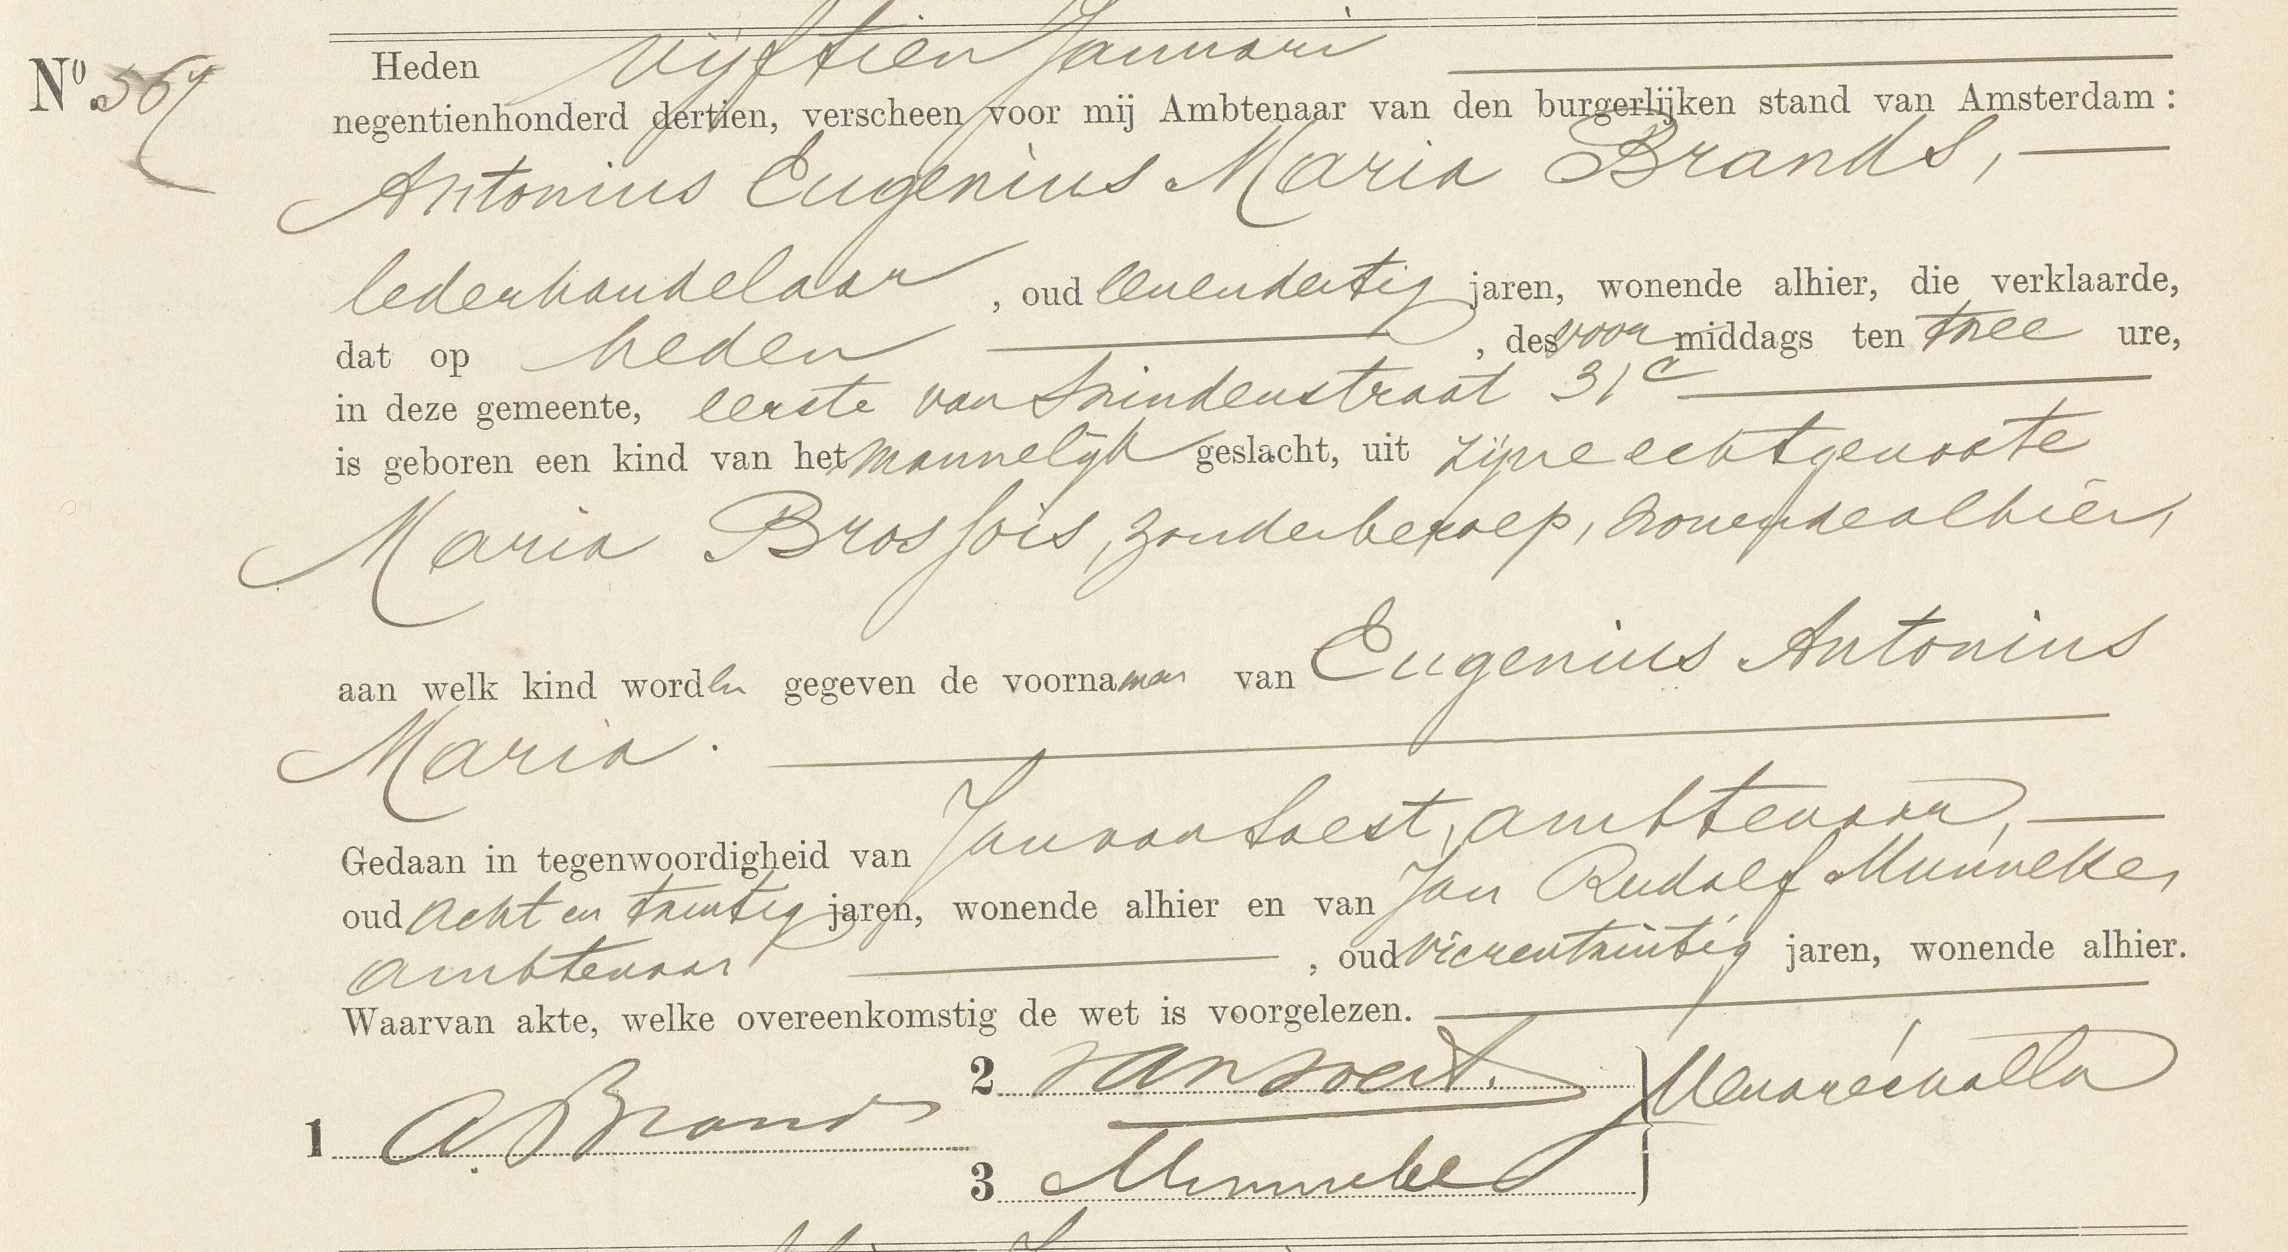 No. 567
Heden vijftien Januari
negentienhonderd dertien, verscheen voor mij Ambtenaar van den burgerlijken stand van Amsterdam:
Antonius Eugenius Maria Brands,
lederhandelaar, oud eenendertig jaren, wonende alhier, die verklaarde,
dat op heden, des voormiddags ten twee ure,
in deze gemeente, eerste van Swindenstraat 31
is geboren een kind van het mannelijk geslacht, uit zijne echtgenoote
Maria Brossois, zonder beroep, wonende alhier,
aan welk kind worden gegeven de voornamen van Eugenius Antonius
Maria.
Gedaan in tegenwoordigheid van Jan van Soest, ambtenaar,
oud acht en twintig jaren, wonende alhier en van Jan Rudolf Munneke,
ambtenaar, oud vierentwintig jaren, wonende alhier.
Waarvan akte, welke overeenkomstig de wet is voorgelezen.
2 van Soest.
1 A. Brands
3 Munneke